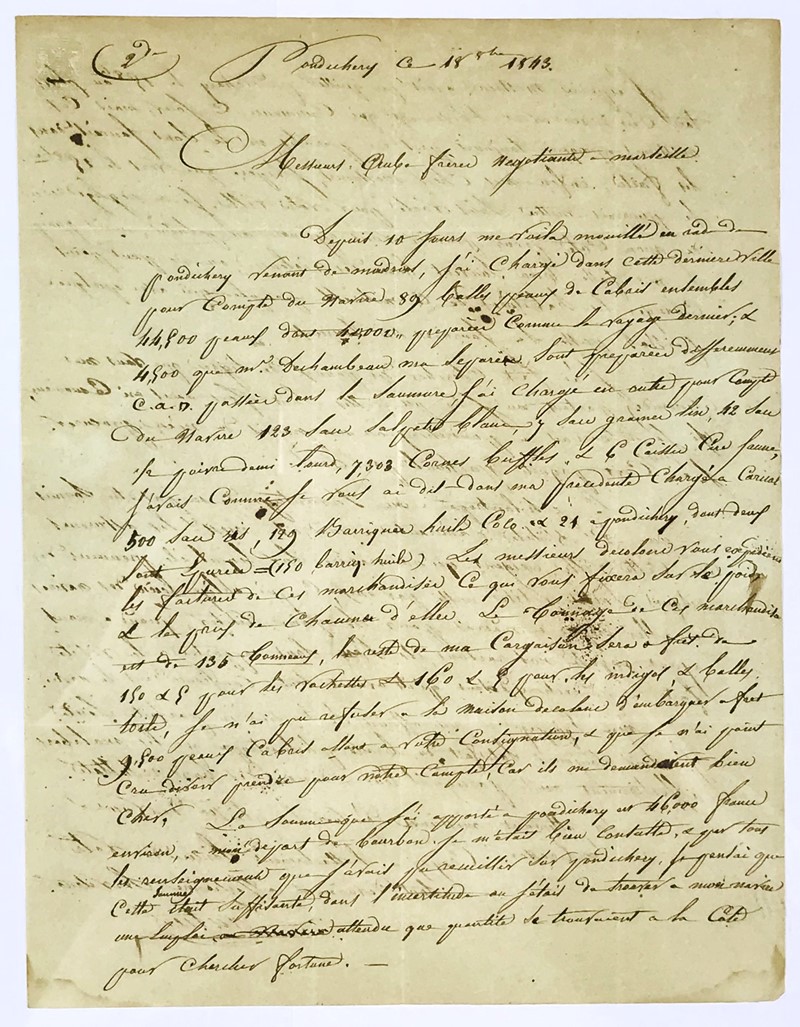 2de
Pondichery Ce 18 8bre 1843.
Messieurs frères négotiants a marseille
Depuis 10 jours me voila mouillé en rade de
pondichery venant de madras, j'ai Chargé dans cette derniere ville
pour Compte du Navire 89 Balles peaux de Cabris ensembles
44,500 peaux dont 40,000,, preparées Comme le voyage dernier; &
4,500 que mr. Dechambeau ma separées, sont preparées differemment
C.a.D. passées dans la Saumure j'ai chargé en outre pour Compte
du Navire 123 Sacs Salpetre blanc, 7 sacs graines lin, 42 Sacs
poivre demi lourd, 7,303 Cornes buffles, & 6 Caisses Cire jaune,
J'avais Comme je vous ai dit dans ma précédente Chargé a Carical
500 Sacs ris, 129 Barriques huile Coco & 21 a pondichery, dont deux
sont (150 barriq. huile) Les messieurs decolons vous expédient
les factures de ces marchandises Ce qui vous fixera Sur le poids
& le prix de Chacune d'elles. Le Tonnage de Ces marchandises
est de 135 Tonneaux, le reste de ma Cargaison Sera a fret de
150 & 5 pour les & 160 & 5 pour les indigos & balles
toile, Je n'ai pu refuser a la maison decolons d'embarquer a fret
9,500 peaux Cabris allant a votre Consignation, & que je n'ai point
Cru devoir prendre pour notre Compte, Car ils me demandaient bien
Cher,
La Somme que j'ai apporté a pondichery est 46,000 francs
environ, mon départ de bourbon. je m'étais bien & par tous
les renseignements que j'avais pu receuillir Sur pondichery, je pensai que
Cette Somme était Suffisante, dans l'incertitude ou j'étais de trouver a mon navire
un Emploi attendu que quantité se trouvaient a la Côte
pour Chercher fortune. —